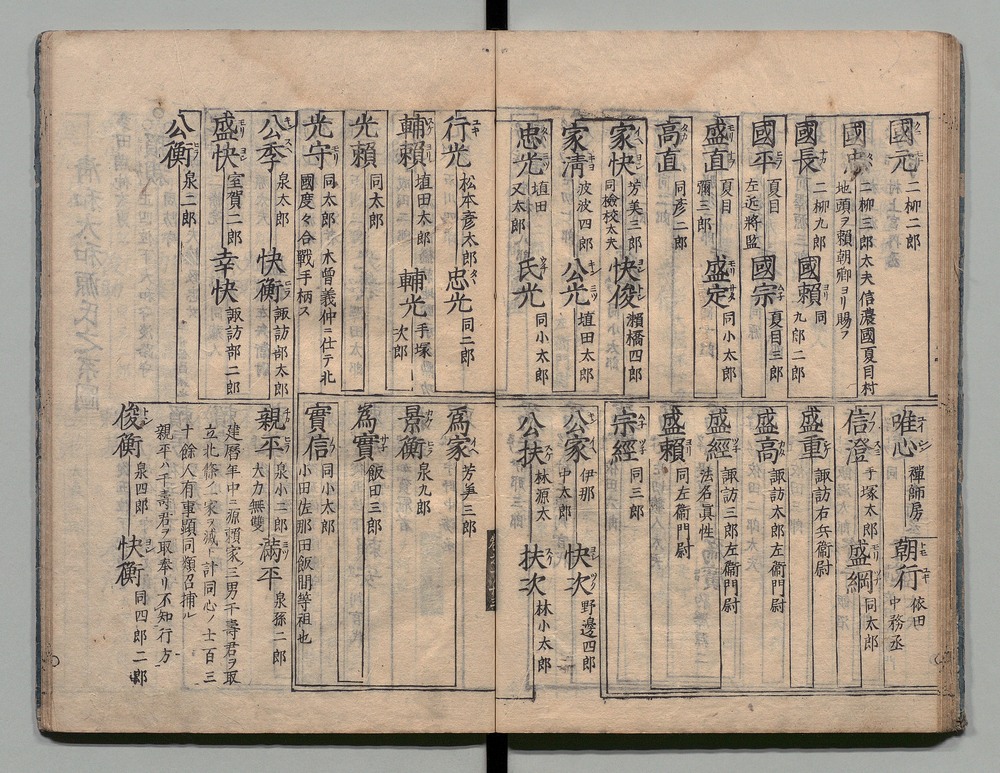 國元 二柳二郎
國忠 二柳三郎太夫信濃國夏目村
地頭ヲ賴朝卿ヨリ賜フ
國長 二柳九郎
國賴 同九郎二郎
國平 夏目左近將監
國宗 夏目三郎
盛直 夏目彌三郎
盛定 同小太郎
高直 同彥二郎
家快 芳美三郎
同檢校太夫
快俊 瀨橋四郎
家淸 波波四郎
公光 埴田太郎
忠光 埴田又太郎
氏光 同小太郎
唯心 禪師房
朝行 依田中務丞
信澄 手塚太郎
盛綱 同太郎
盛重 諏訪右兵衞尉
盛高 諏訪太郎左衞門尉
盛經 諏訪三郎左衞門尉
法名眞性
盛賴 同左衞門尉
宗經 同三郎
公家 伊那中太郎
快次 野邊四郎
公扶 林源太
扶次 林小太郎
行光 松本彥太郎
忠光 同二郎
輔賴 埴田太郎
輔光 手塚次郎
光賴 同太郎
光守 同太郎木曾義仲ニ仕テ北
國度々合戰手柄ス
公季 泉太郎
快衡 諏訪部太郎
盛快 室賀二郎
幸快 諏訪部二郎
公衡 泉二郎
爲家 芳美三郎
景衡 泉九郎
爲實 飯田三郎
實信 同小太郎
小田佐那田飯間等祖也
親平 泉小二郎
大力無雙
滿平 泉孫二郎
建曆年中ニ源賴家三男千壽君ヲ取
立北條家ヲ滅ト計同心ノ士百三
十餘人有事顯同類召捕ル
親平ハ千壽君ヲ取奉リ不知行方
俊衡 泉四郎
快衡 同四郎二郎